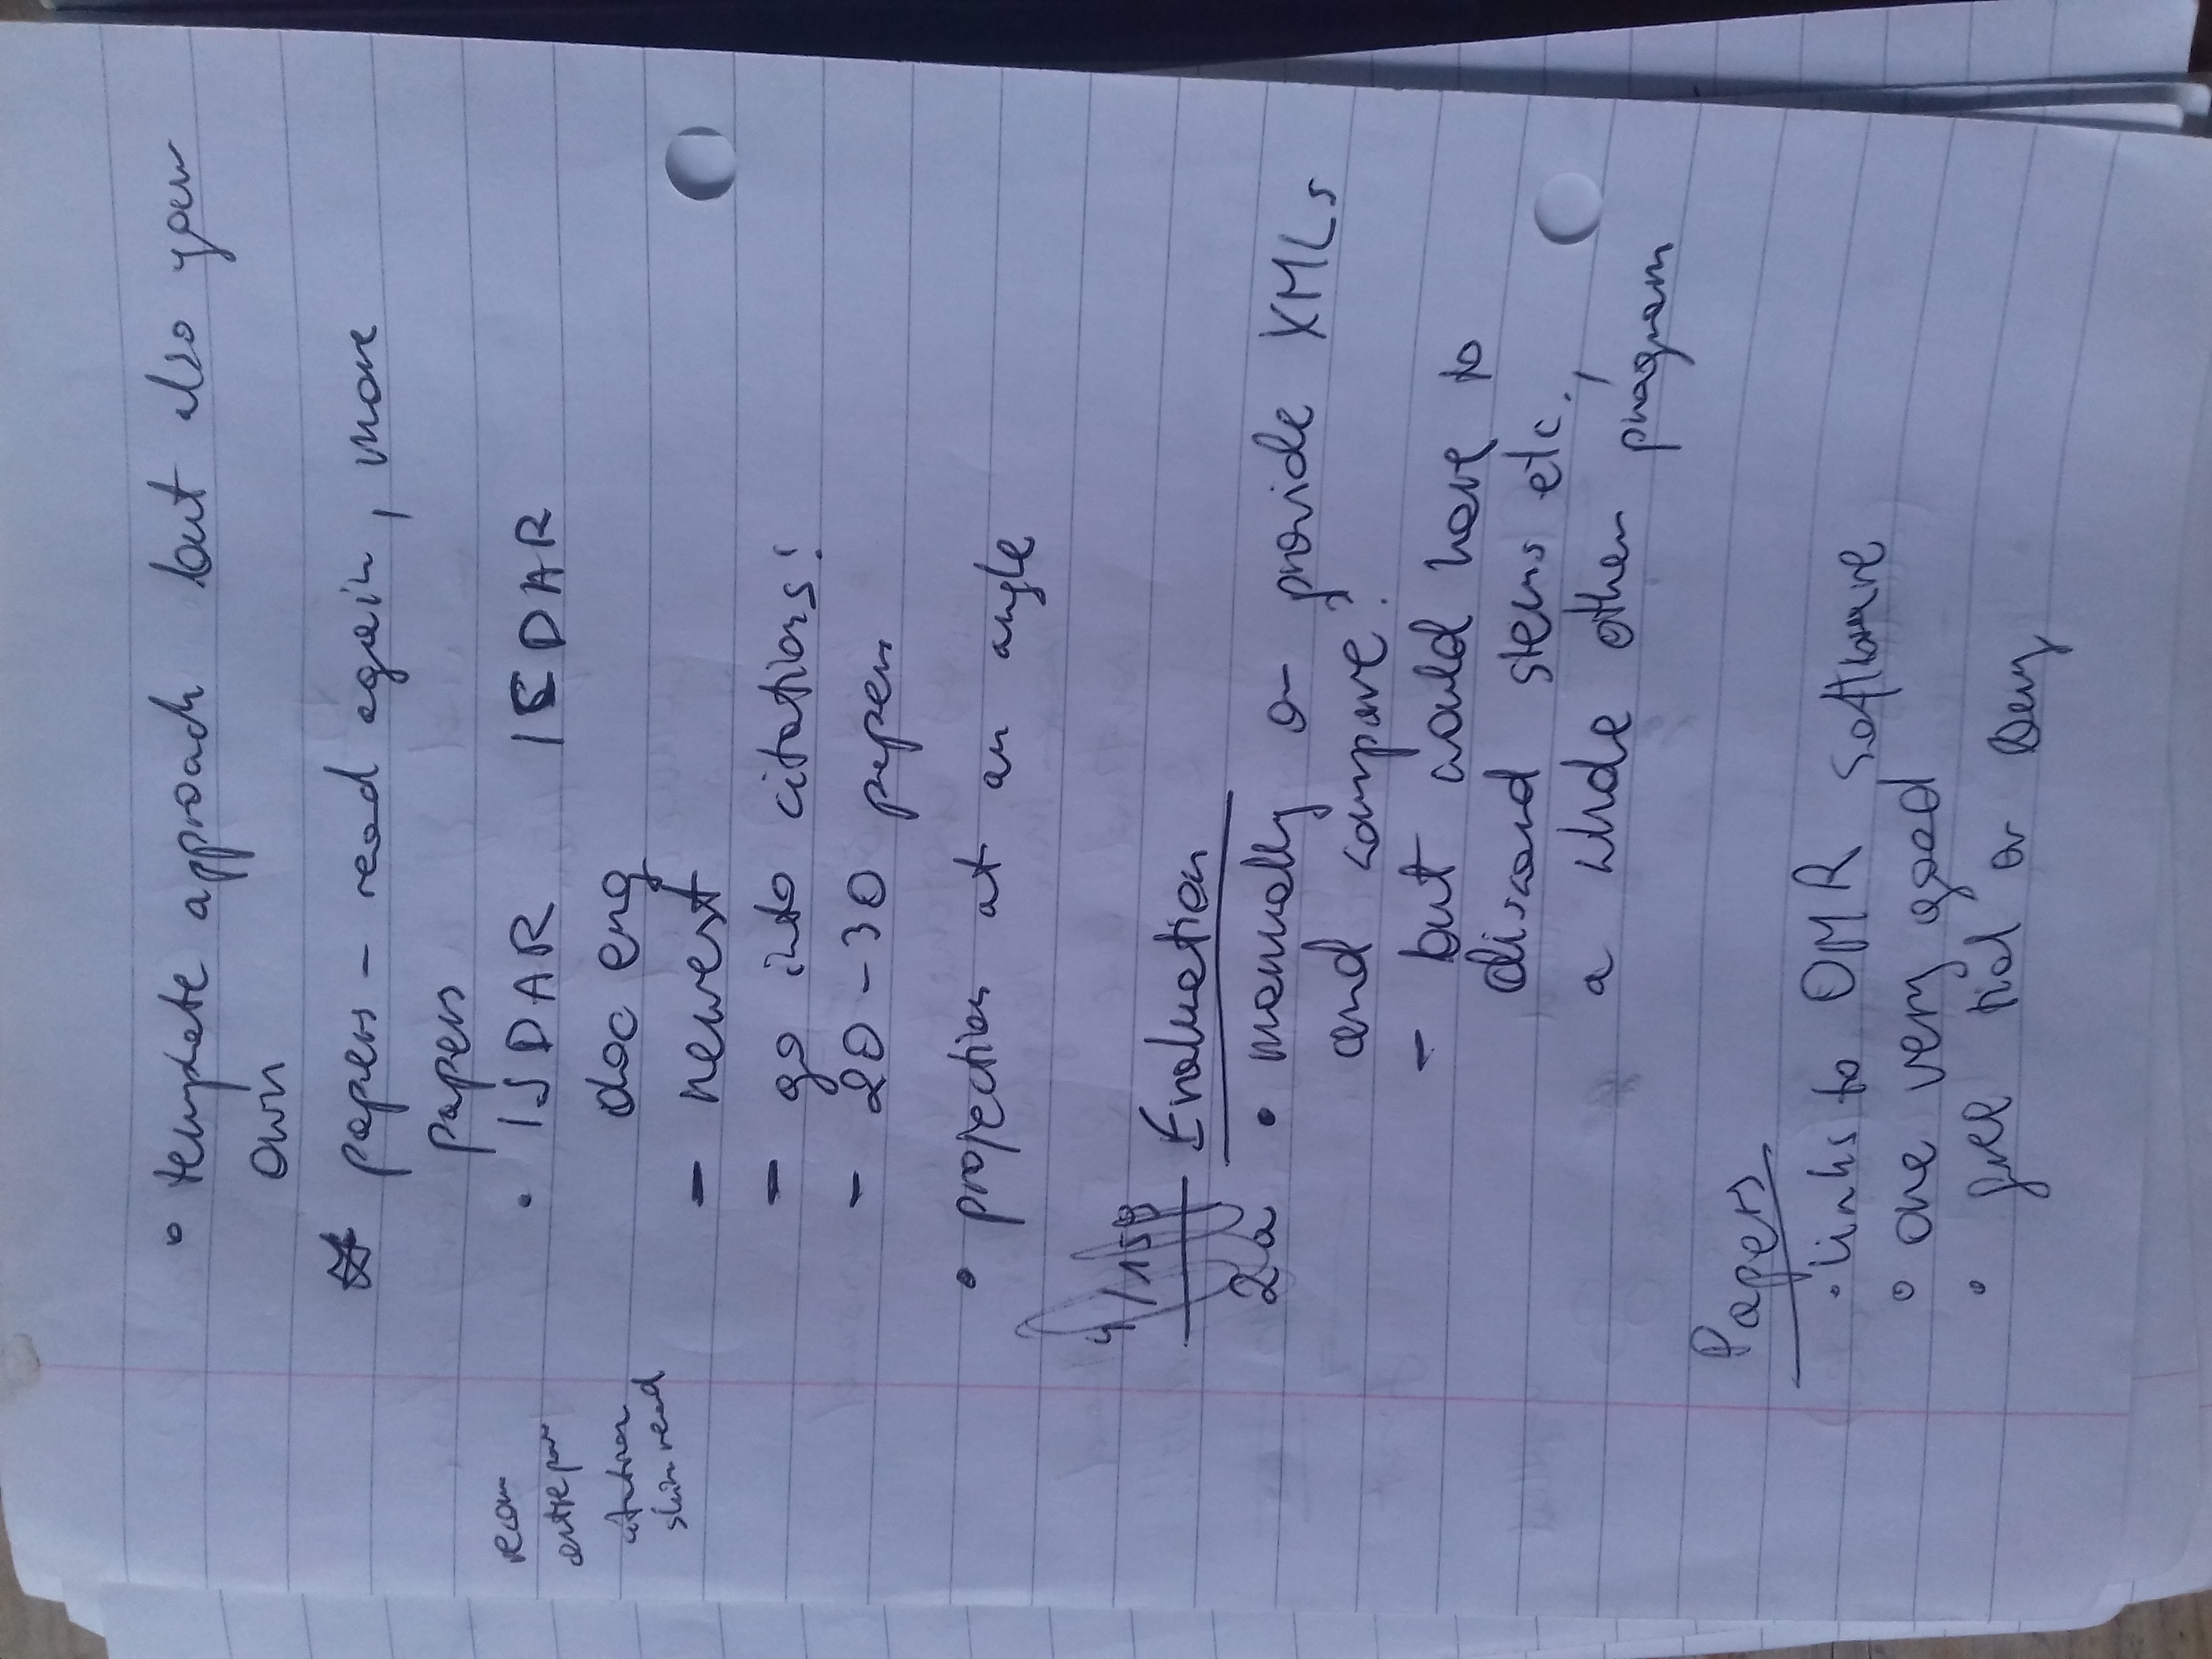 • template approach but also your
own
papers - read again, more
papers
• ISDAR ICDAR
doc eng
- newest
- go into citations!
- 20-30 papers
citation
skim read
• projection at an angle
Evaluation
2a • manually or provide XMLs
and compare?
- but would have to
discard stems etc.,
a whole other program
Papers
• links to OMR software
• one very good
• free trial or